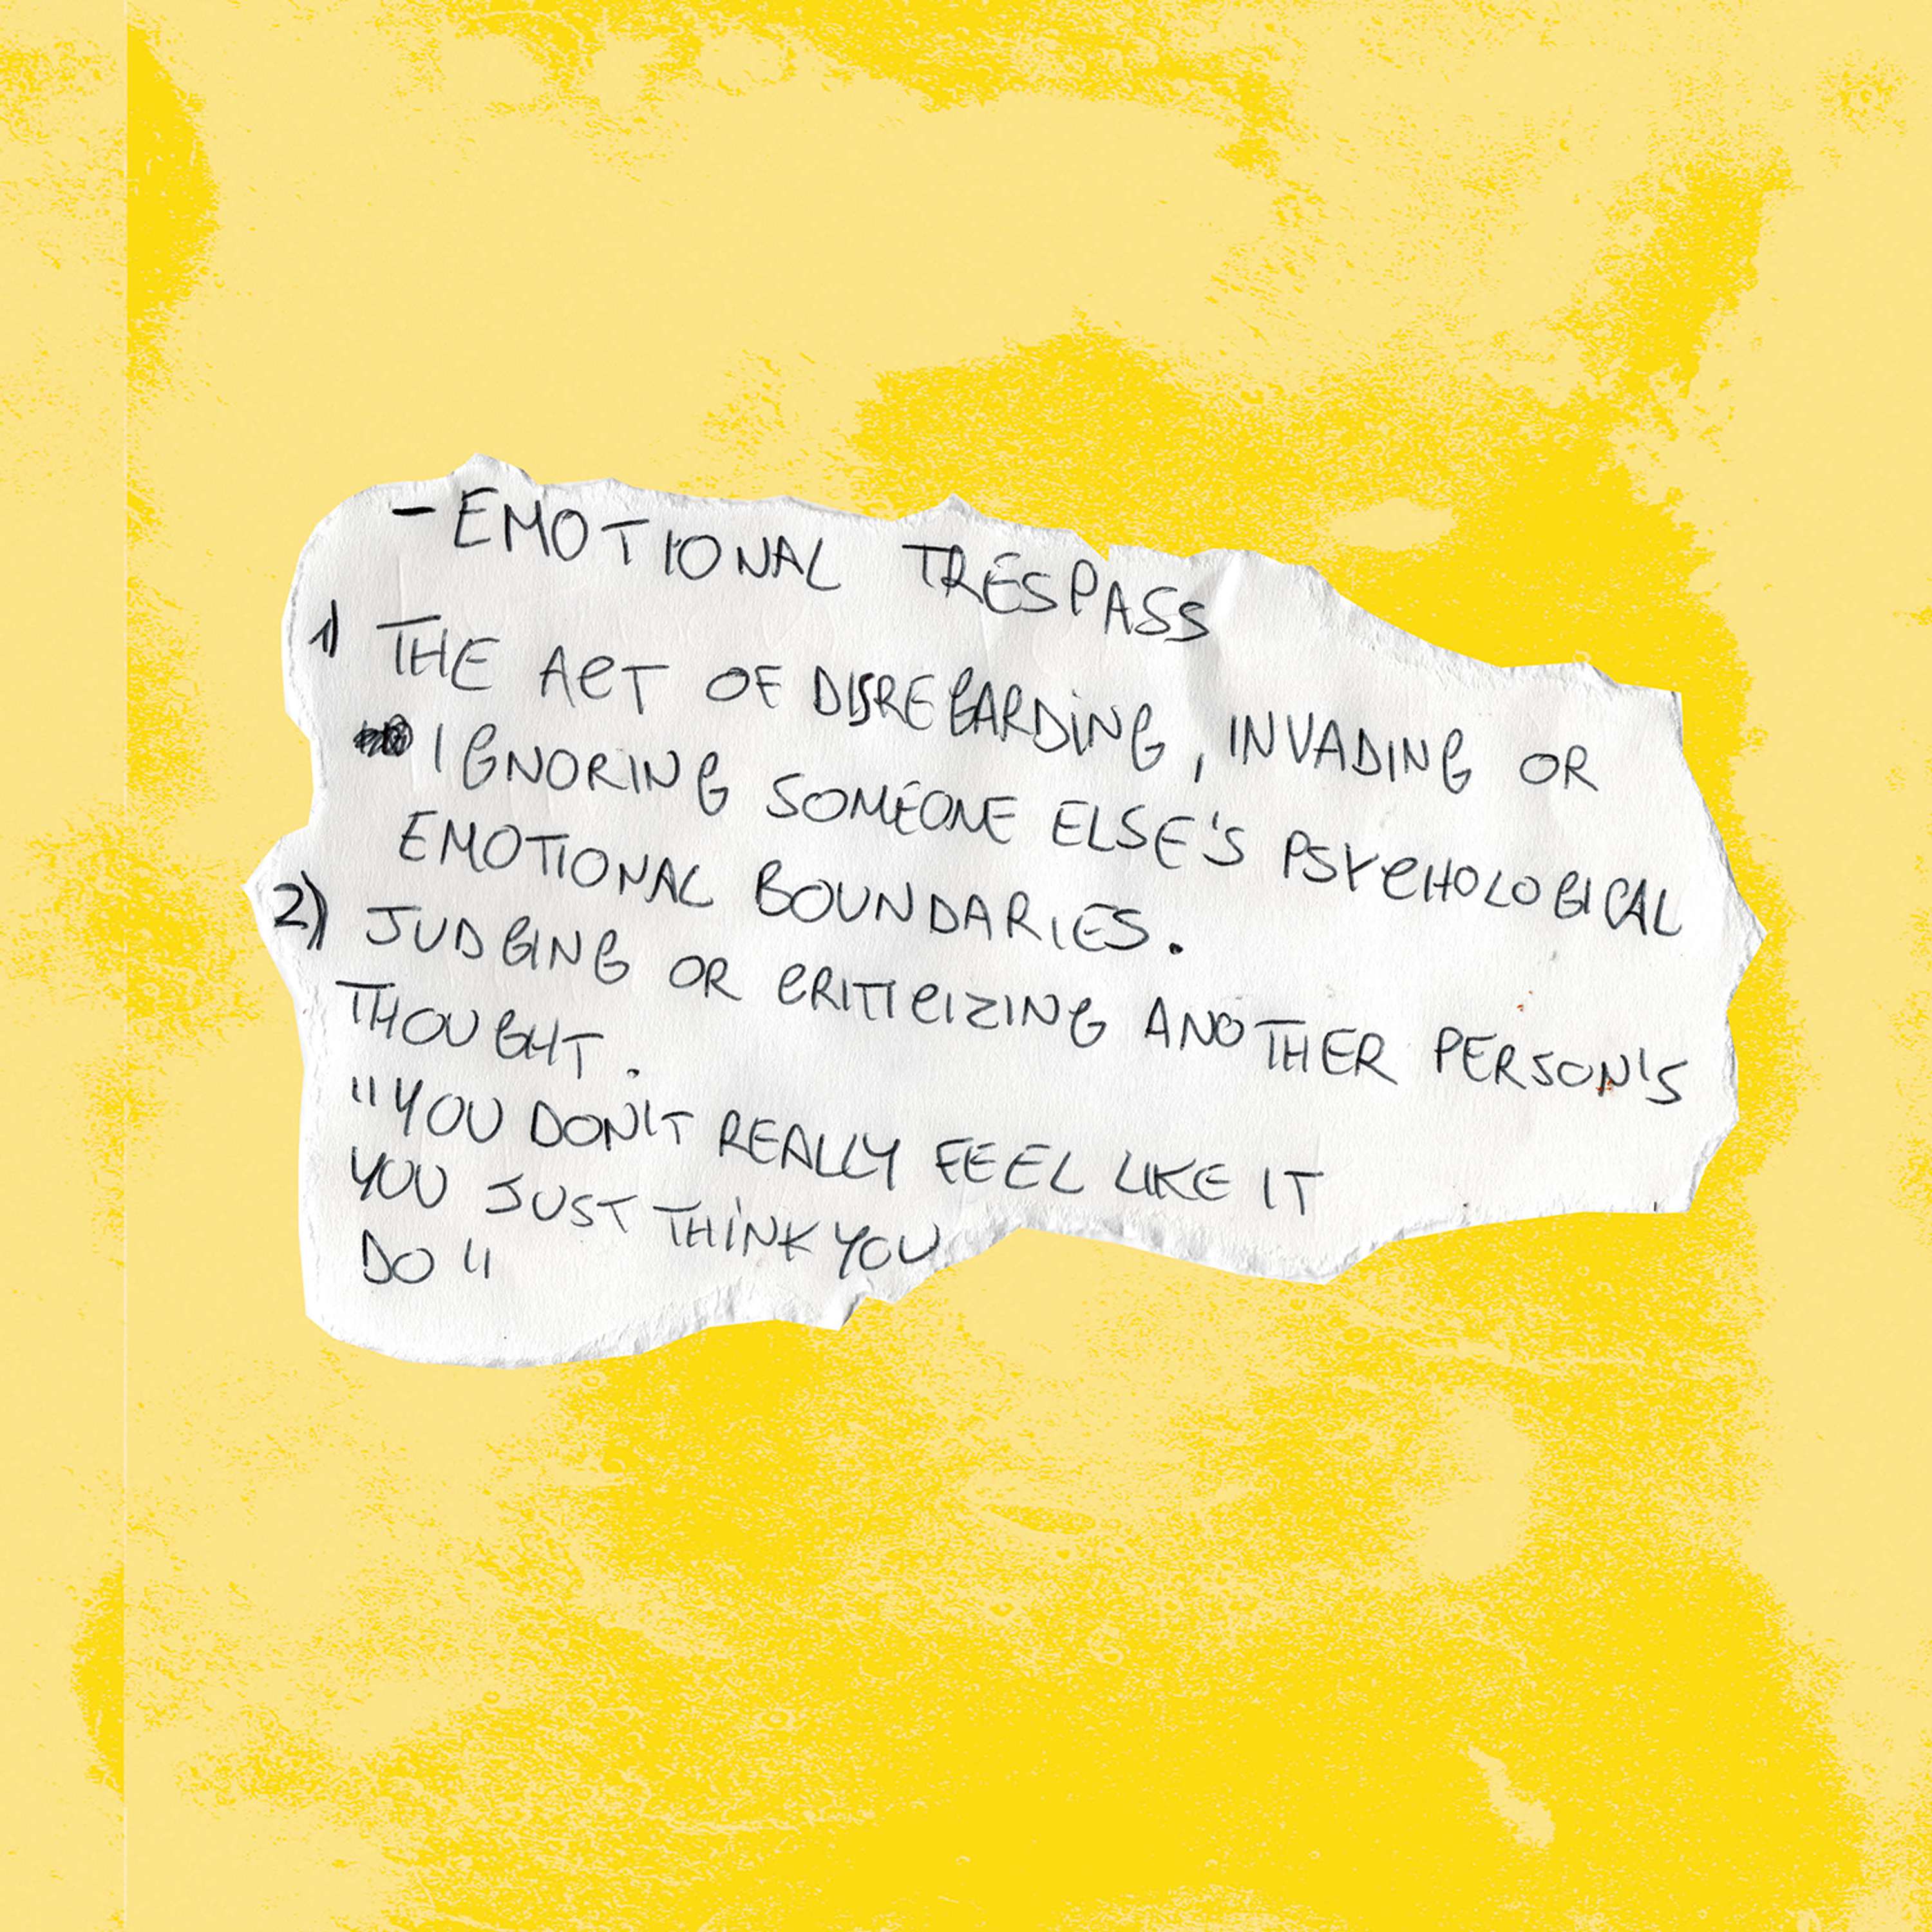 - EMOTIONAL TRESPASS
1) THE ACT OF DISREGARDING, INVADING OR
IGNORING SOMEONE ELSE'S PSYCHOLOGICAL
EMOTIONAL BOUNDARIES.
2) JUDGING OR CRITICIZING ANOTHER PERSON'S
THOUGHT.
"YOU DON'T REALLY FEEL LIKE IT
YOU JUST THINK YOU
DO"